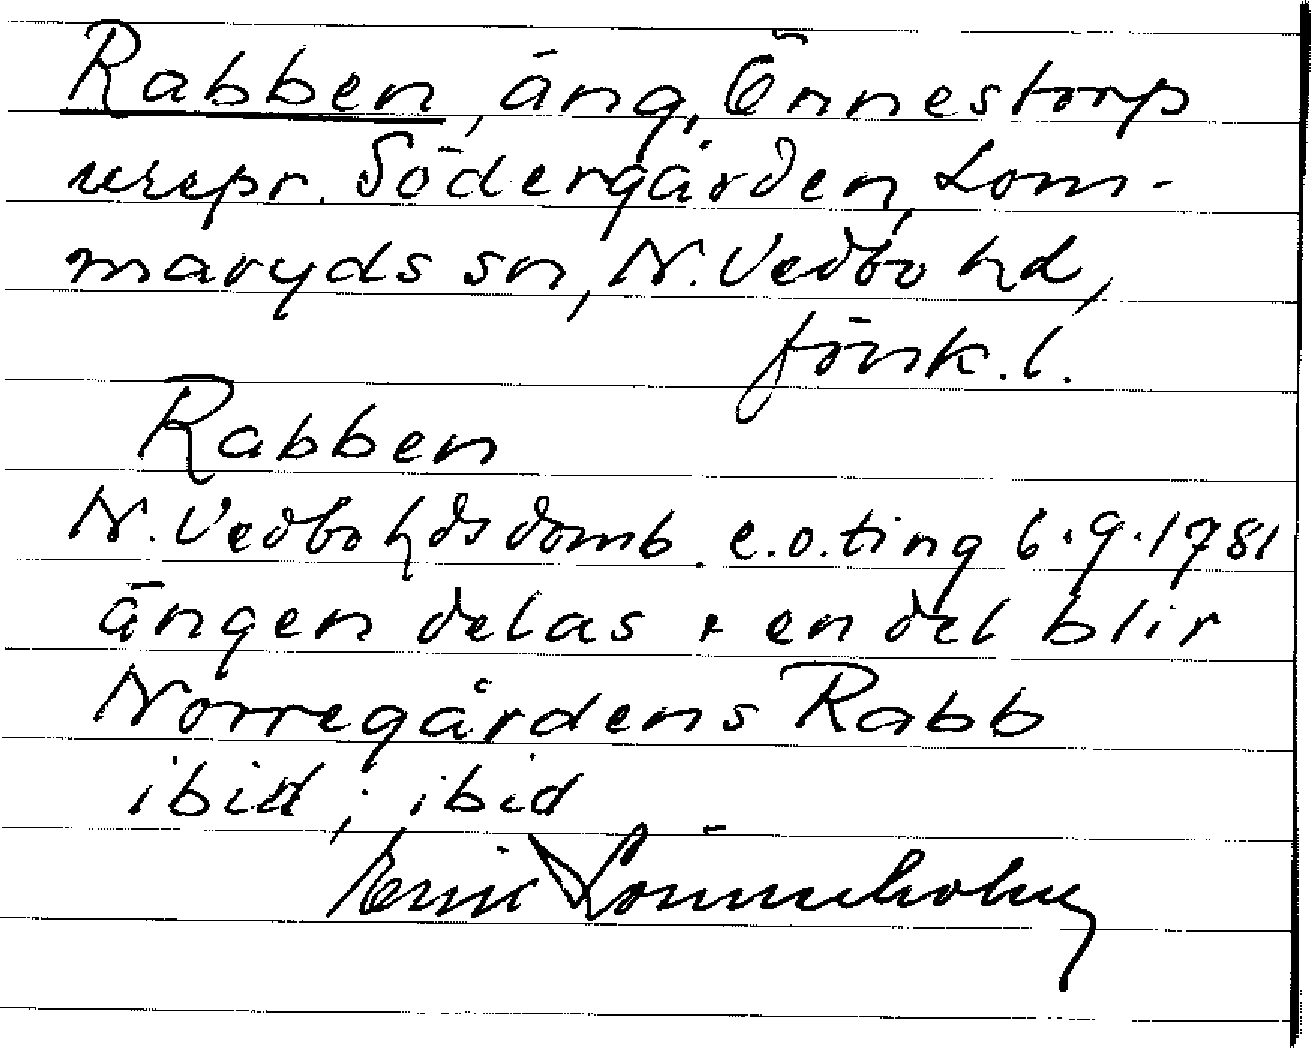 Rabben, äng, Önnestorp
urspr. Södergården, Lom-
maryds sn, N. Vedbo hd,
försk. l.
Rabben
N. Vedbo hds domb. e.o. ting 6.9.1781
ängen delas + en del blir
Norregårdens Rabb
ibid; ibid
Erik Lönnholm